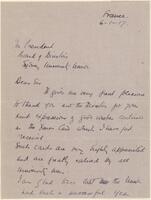 France
The President
Board of Directors
Sydney Univers. Union
Dear Sir
It gives me very great pleasure
to thank you and the Directors for your
kind expression of good wishes contained
in the Xmas Card which I have just
received.
Such cards are very highly appreciated
and are greatly valued by all
University men.
I am glad that the Union
had such a successful year